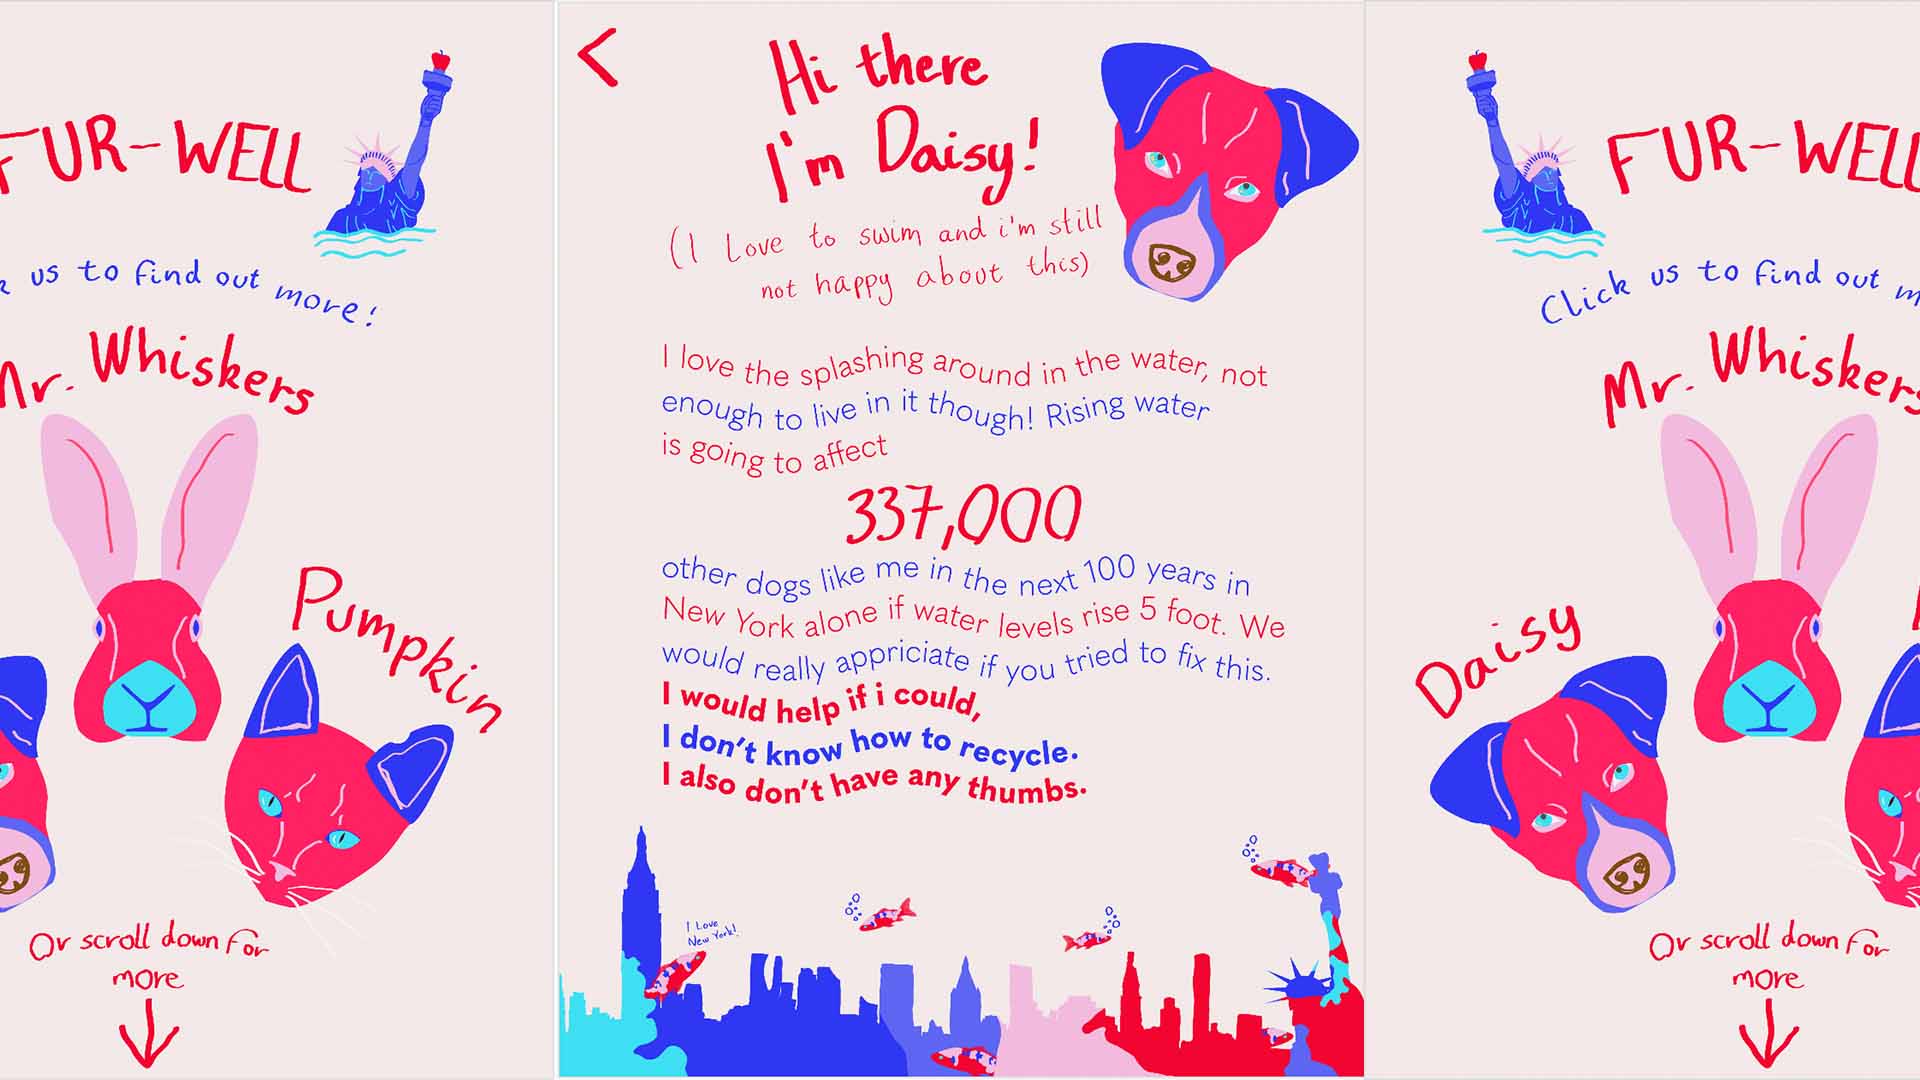 FUR-WELL
us to find out more!
Mr. Whiskers
Pumpkin
Or scroll down for
more
Hi there
I'm Daisy!
(I Love to swim and i'm still
not happy about this)
I love the splashing around in the water, not
enough to live in it though! Rising water
is going to affect
337,000
other dogs like me in the next 100 years in
New York alone if water levels rise 5 foot. We
would really appriciate if you tried to fix this.
I would help if i could,
I don't know how to recycle.
I also don't have any thumbs.
I Love
New York!
FUR-WELL
Click us to find out m
Mr. Whiskers
Daisy
Or scroll down for
more